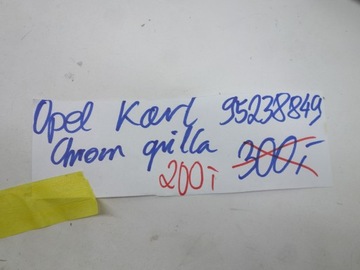 Opel Karl 95238849
Chrom grilla 300:-
200:-